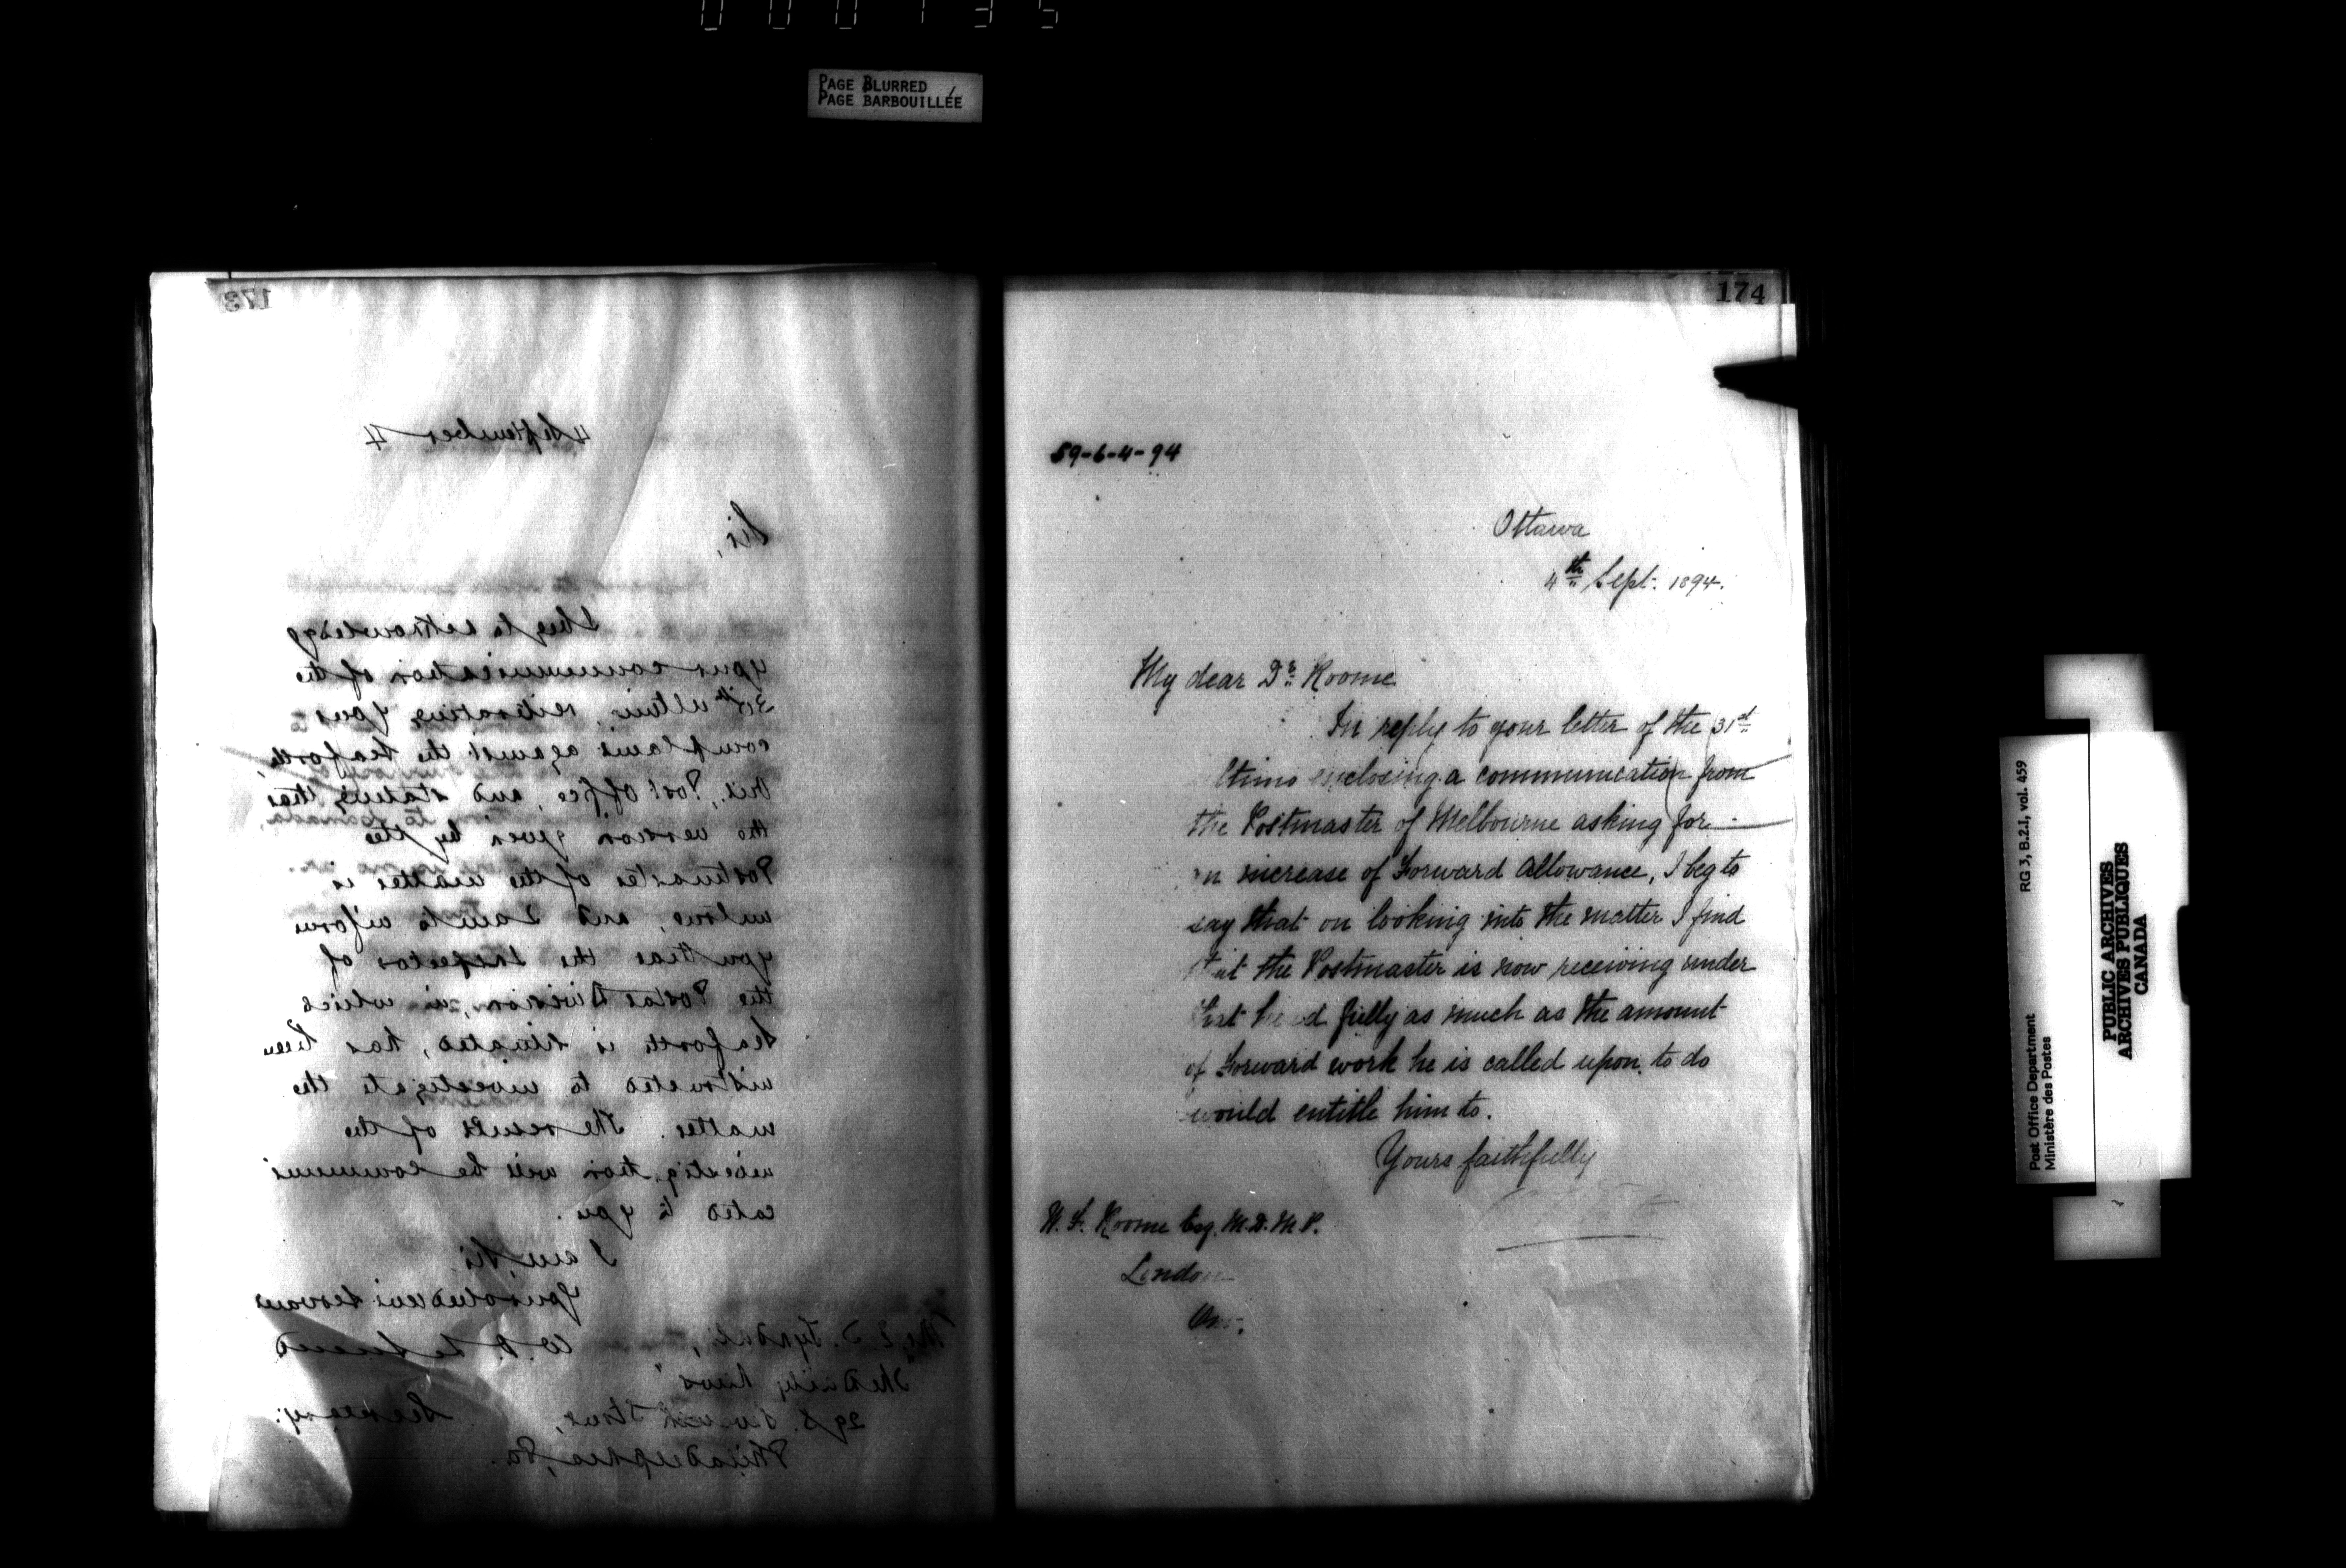 000135
PAGE BLURRED
PAGE BARBOUILLÉE
173
4 September 4
Sir,
I beg to acknowledge
your communication of the
31st ultimo, reiterating your
complaint against the Seaforth,
Ont., Post Office, and stating that
the version given by the
Postmaster of the matter is
untrue, and I am to inform
you that the Inspector of
the Postal Division, in which
Seaforth is situated, has been
instructed to investigate the
matter. The result of the
investigation will be communi
cated to you.
I am, Sir,
Your obedient Servant
W. D. LeSueur
Secretary.
The Daily News
Street,
Philadelphia, Pa.
174
59-6-4-94
Ottawa
4th Sept. 1894.
My dear Dr. Roome
In reply to your letter of the 31st
ltimo enclosing a communication from
the Postmaster of Melbourne asking for
an increase of Forward Allowance, I beg to
say that on looking into the matter I find
that the Postmaster is now receiving under
that head fully as much as the amount
of Forward work he is called upon to do
would entitle him to.
Yours faithfully
W. F. Roome Esq. M.D. M.P.
London
Ont.
Post Office Department
Ministère des Postes
RG 3, B.2.I, vol. 459
PUBLIC ARCHIVES
ARCHIVES PUBLIQUES
CANADA